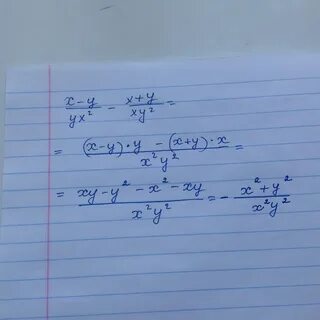 (x-y)/(yx²) - (x+y)/(xy²) =
= ((x-y)·y - (x+y)·x)/(x²y²) =
= (xy-y²-x²-xy)/(x²y²) = -(x²+y²)/(x²y²)